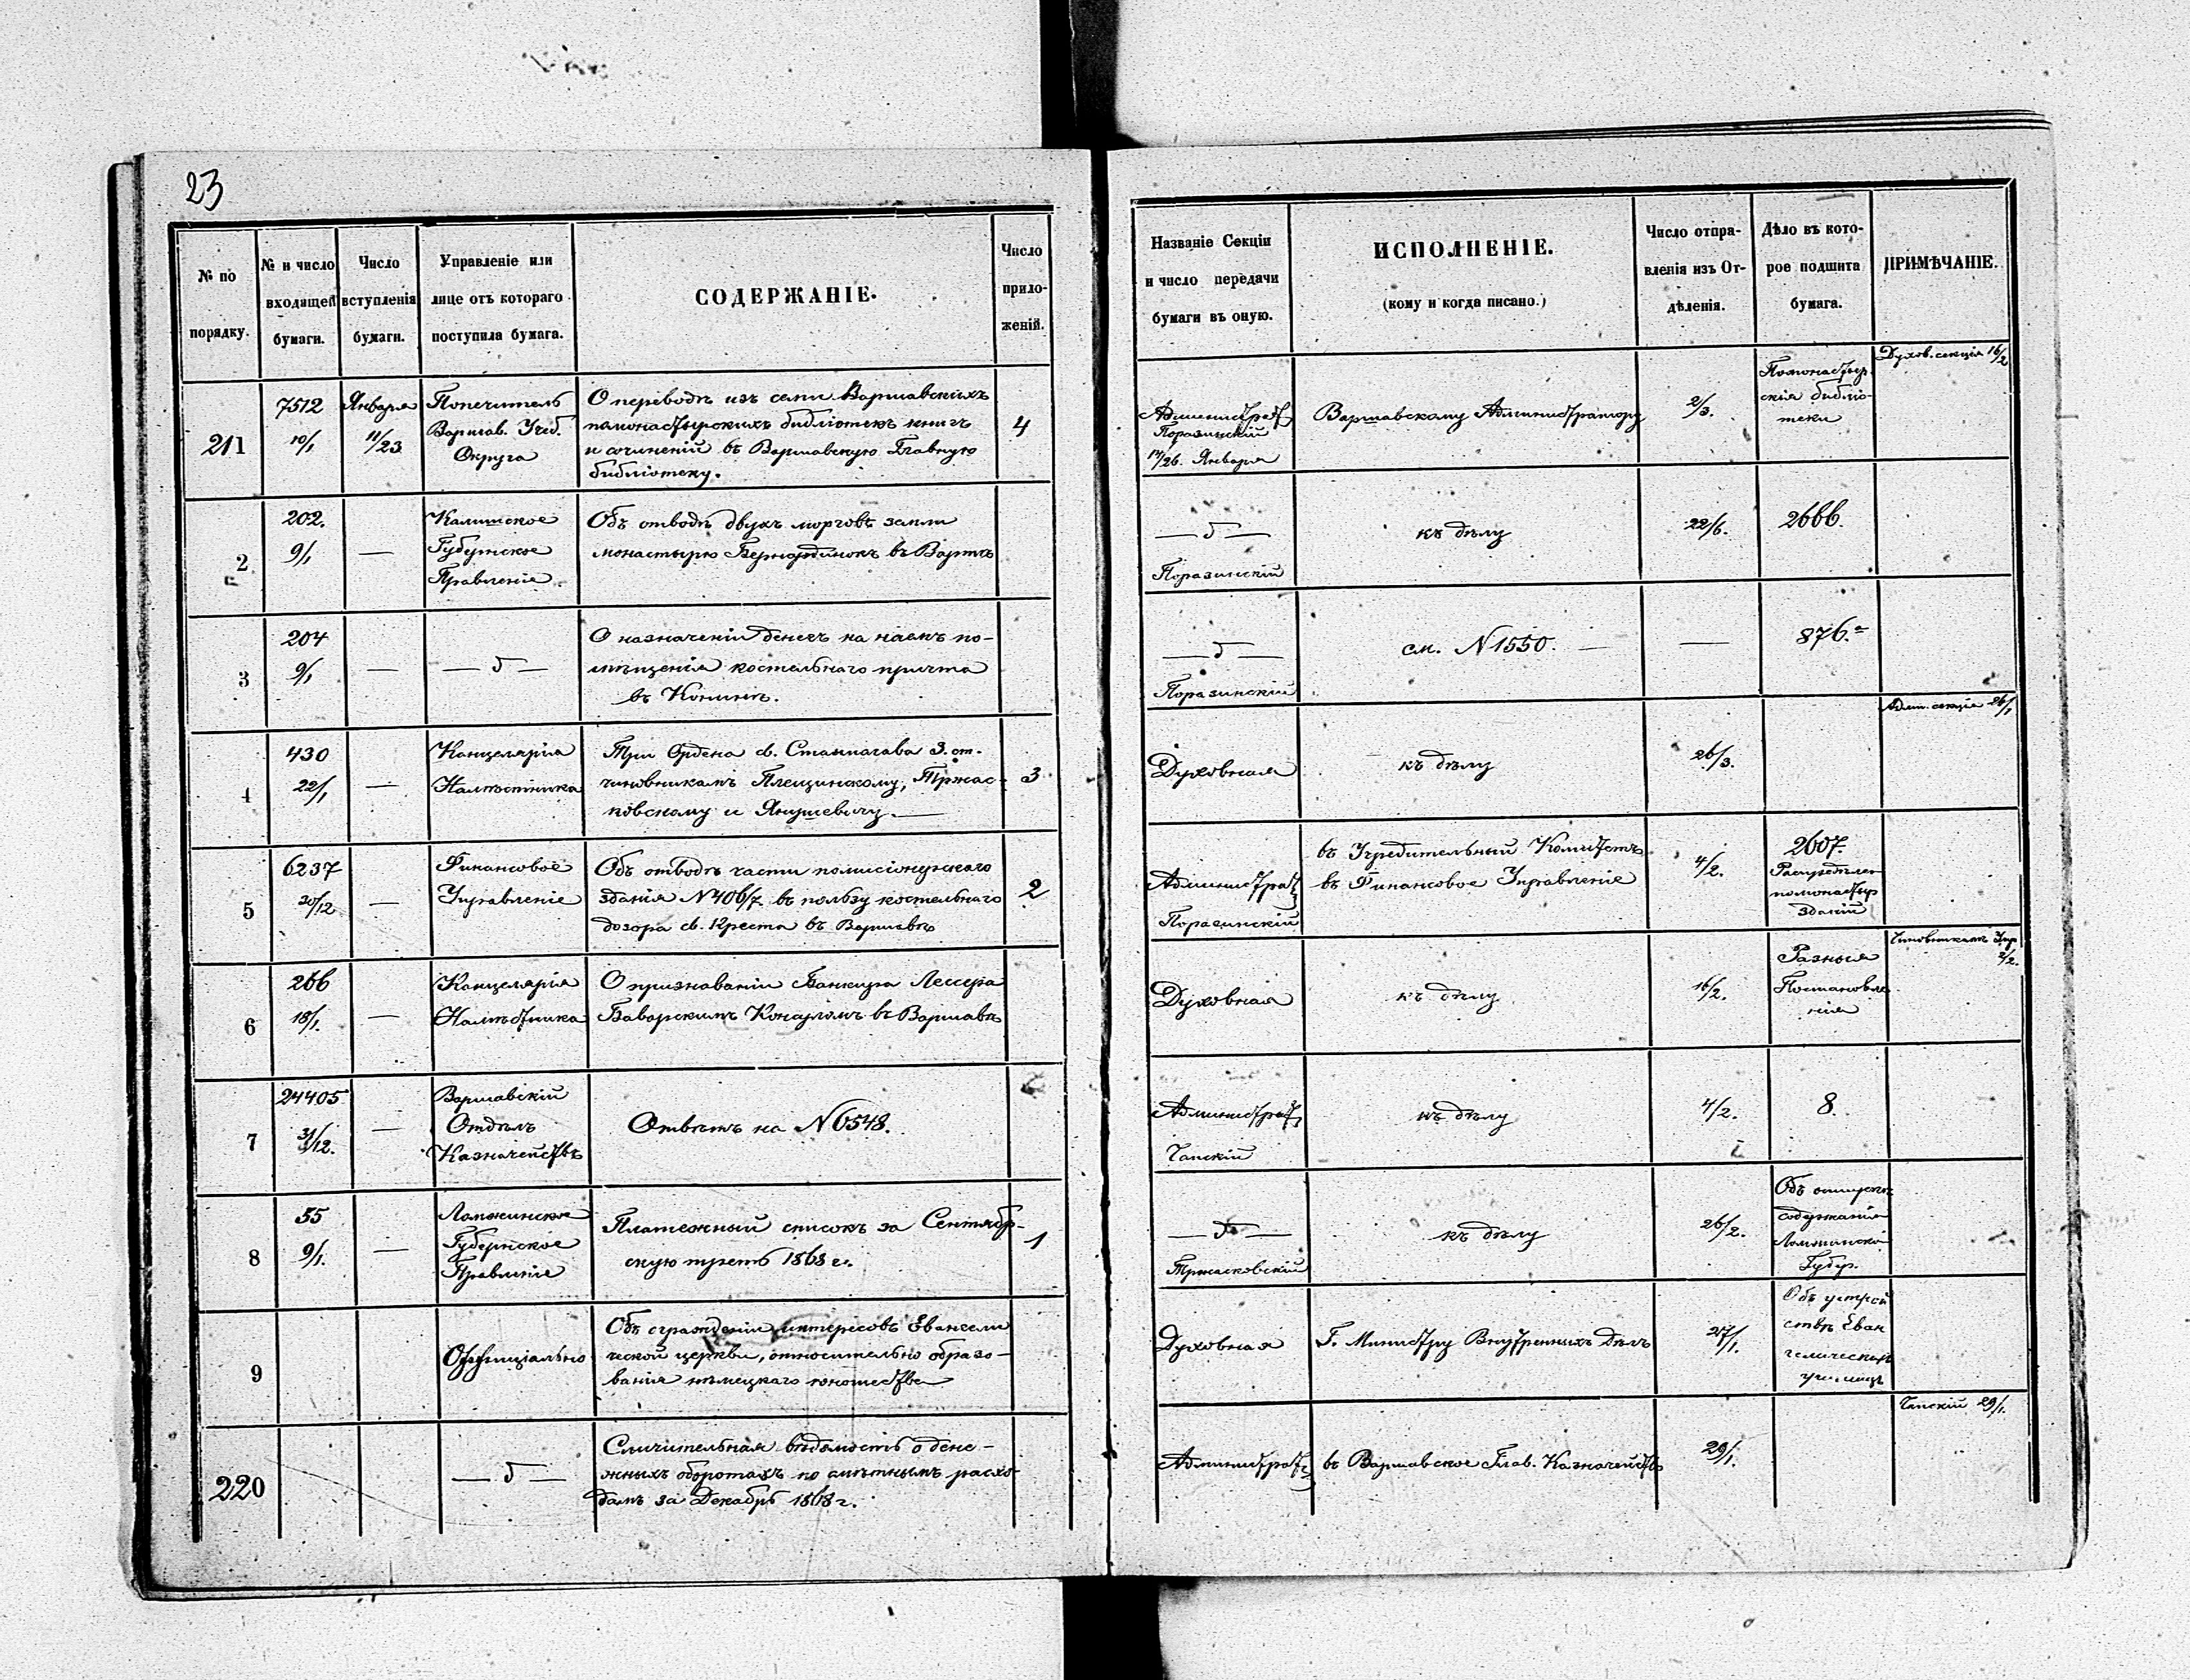 23
№ по порядку.
№ и число входящей бумаги.
Число вступленія бумаги.
Управленіе или лице отъ котораго поступила бумага.
СОДЕРЖАНІЕ.
Число приложеній.
Названіе Секціи и число передачи бумаги въ оную.
ИСПОЛНЕНІЕ.
(кому и когда писано.)
Число отправленія изъ Отдѣленія.
Дѣло въ которое подшита бумага.
ПРИМѢЧАНІЕ.
211
7512
10/1
Января
11/23
Попечитель
Варшав. Учеб.
Округа
О переводѣ изъ семи Варшавскихъ
помонастырскихъ библіотекъ книгъ
и сочиненій въ Варшавскую Главную
библіотеку.
4
Администрат
Поразинскій
14/26. Января
Варшавскому Администратору
2/3.
Помонастыр
скія библіо-
теки
Духов. секція 16/2
2
202.
9/1
—
Калишское
Губернское
Правленіе
Объ отводѣ двухъ морговъ земли
монастырю Бернардинокъ въ Вартѣ
— 5 —
Поразинскій
къ дѣлу
22/6.
2666.
3
204
9/1
—
— 5 —
О назначеніи денегъ на наемъ по-
мѣщенія костельнаго причта
въ Конинѣ.
— 5 —
Поразинскій
см. N 1550.
—
876.а
4
430
22/1
—
Канцелярія
Намѣстника
Три Ордена св. Станислава 3. ст.
чиновникамъ Плещинскому, Тржас-
ковскому и Янушевичу. —
3
Духовная
къ дѣлу
26/3.
Адм. секція 26/1
5
6237
30/12
—
Финансовое
Управленіе
Объ отводѣ части помисіонерскаго
зданія N 406/7 въ пользу костельнаго
дозора св. Креста въ Варшавѣ
2
Администрат
Поразинскій
въ Учредительный Комитетъ
въ Финансовое Управленіе
4/2.
2607.
Распредѣлен
помонастыр
зданій
6
266
18/1.
—
Канцелярія
Намѣстника
О признаваніи Банкира Лессера
Баварскимъ Консуломъ въ Варшавѣ
Духовная
къ дѣлу
16/2.
Разныя
Постановле
нія
Чиновникамъ Упр
2/2.
7
24405
31/12.
—
Варшавскій
Отдѣлъ
Казначействъ
Отвѣтъ на N 6548.
Администрат
Чапскій
къ дѣлу
4/2.
8.
8
55
9/1.
—
Ломжинское
Губернское
Правленіе
Платежный списокъ за Сентябр-
скую треть 1868 г.
1
— 5 —
Тржасковскій
къ дѣлу
26/2.
Объ отпускѣ
содержанія
Ломжинской
Губер.
9
Оффиціально
Объ огражденіи интересовъ Евангели
ческой церкви, относительно образо-
ванія нѣмецкаго юношества
Духовная
Г. Министру Внутреннихъ Дѣлъ
27/1.
Объ устрой
ствѣ Еван
гелическихъ
училищъ
220
— 5 —
Сличительная вѣдомость о дене-
жныхъ оборотахъ по смѣтнымъ расхо-
дамъ за Декабрь 1868 г.
Администрат
въ Варшавское Глав. Казначейство
29/1.
Чапскій 29/1.